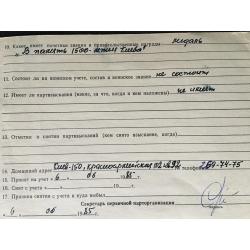 10. Какие имеет почетные звания и правительственные награды медаль
"В память 1500-летия Киева"
11. Состоит ли на воинском учете, состав и воинское звание не состоит
12. Имеет ли партвзыскания (какие, за что, когда и кем наложены) не имеет
13. Отметки о снятии партвзысканий (кем снято взыскание, когда)
14. Домашний адрес Киев-150, Красноармейская № телефона 269-74-75
15. Принят на учет « 6 » 06 1985 г.
16. Снят с учета « » 19 г.
17. Причина снятия с учета и куда выбыл
Секретарь первичной парторганизации
« 6 » 06 1985 г.